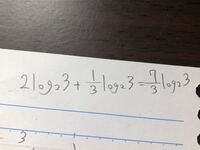 2log₂3 + 1/3 log₂3 = 7/3 log₂3
3